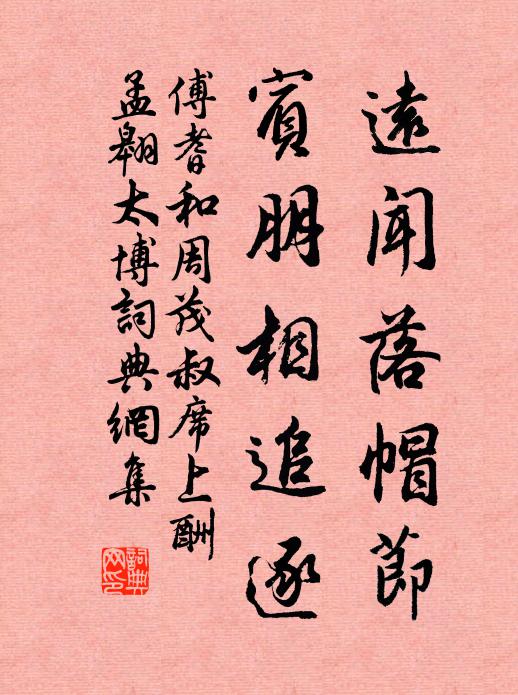 遠聞落帽節
賓朋相追逐
傅耆和周茂叔席上酬
孟翱太博詞典網集
詞典网印